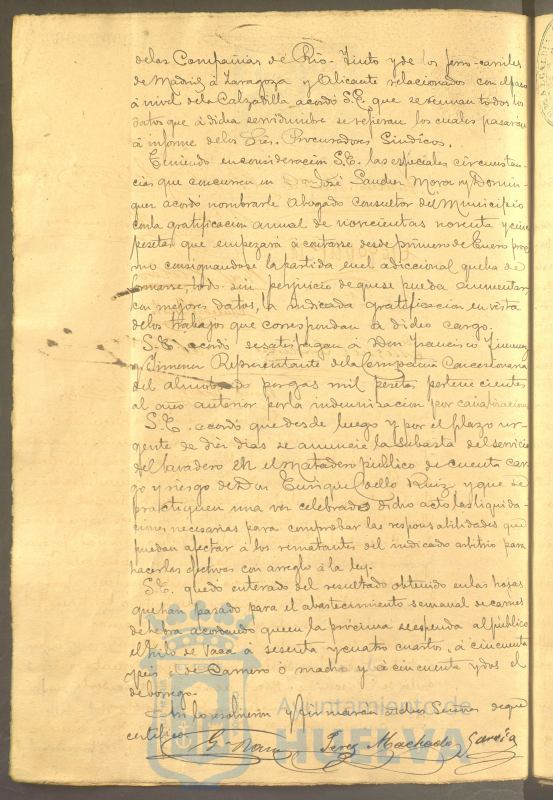 de las Compañias de Rio-Tinto y de los ferro-carriles
de Madrid á Zaragoza y Alicante relacionados con el paso
á nivel de la Calzadilla, acordó S.E. que se reunan todos los
datos que á dicha servidumbre se refieran los cuales pasaran
á informe de los Sres. Procuradores Sindicos.
Teniendo en consideracion S.E. las especiales circunstan-
cias que concurren en Don José Sanchez Mora y Domin-
guez acordó nombrarle Abogado Consultor del Municipio
con la gratificacion anual de novecientas noventa y cinco
pesetas que empezará á contarse desde primero de Enero pro
mo consignandose la partida en el adiccional que ha de
formarse, todo sin perjuicio de que se pueda aumentar
con mejores datos, la indicada gratificacion en vista
de los trabajos que correspondan á dicho cargo.
S.E. acordó se satisfagan á Don Francisco Jimenez
y Jimenez Representante de la Compañia Concesionaria
del alumbrado por gas mil pesetas pertenecientes
al año anterior por la indemnizacion por canalizacion
S.E. acordó que desde luego y por el plazo ur-
gente de diez dias se anuncie la subasta del servicio
del lavadero en el Matadero publico de cuenta car-
go y riesgo de Don Enrique Coello Ruiz y que se
practiquen una vez celebrado dicho acto las liquida-
ciones necesarias para comprobar las responsabilidades que
puedan afectar á los rematantes del indicado arbitrio para
hacerlas efectivas con arreglo á la ley.
S.E. quedó enterado del resultado obtenido en las hojas
que han pasado para el abastecimiento semanal de carnes
de hebra acordando que en la próxima se espenda al público
el kilo de Vaca á sesenta y cuatro cuartos, á cincuenta
y seis de Carnero ó macho y á cincuenta y dos el
de borrego.
Asi lo resolvieron y firmaran dichos Señores de que
certifico
Perez Machado Garcia
Ayuntamiento de
HUELVA